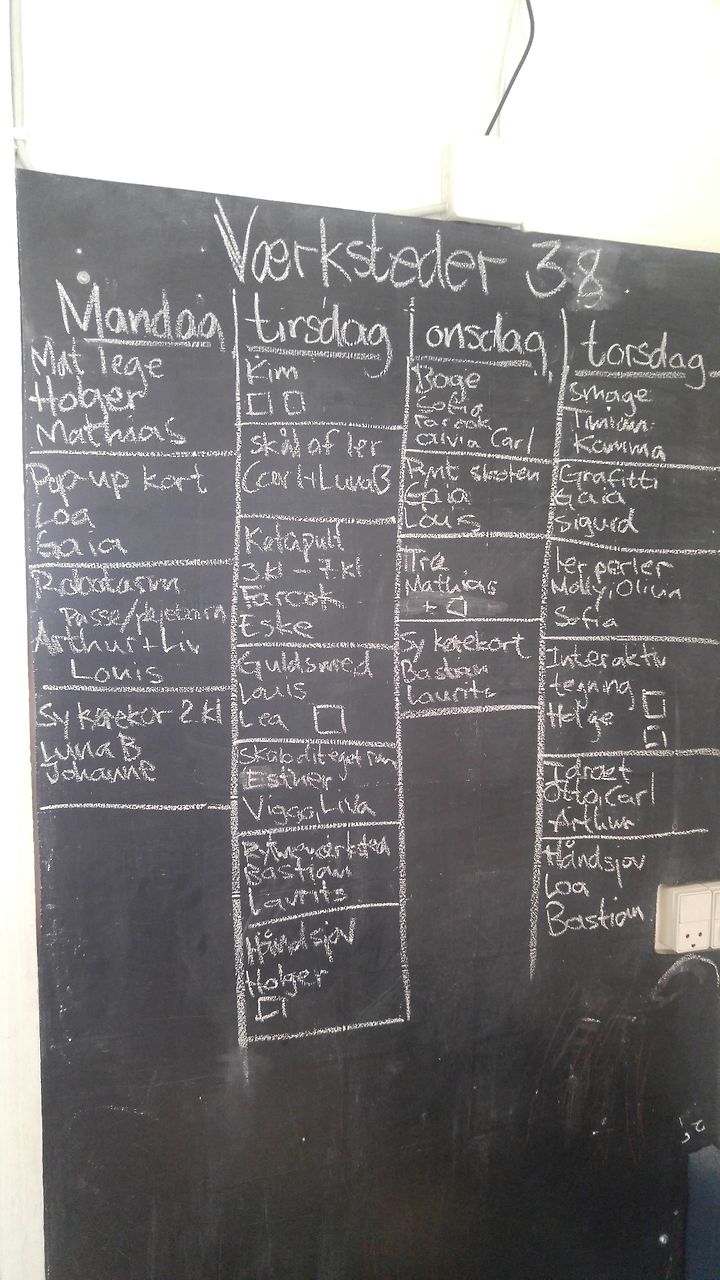 Værksteder 38
Mandag
Mat lege
Holger
Mathias
Pop-up kort
Loa
Gaia
Robotarm
Arthur + Liv
Louis
Sy kørekor 2.kl
Luna B
Johanne
tirsdag
Kim
skål af ler
Carl + Luna B
Katapult
3 kl - 7 kl
Farook
Eske
Guldsmed
Louis
Lea
Esther
Viggo, Liva
Bastian
Laurits
Håndsjov
Holger
onsdag
Bage
Sofia
Farook
Olivia Carl
Gaia
Louis
Træ
Mathias
+
Sy kørekort
Bastian
Laurits
torsdag
smage
Timian
Kamma
Grafitti
Gaia
Sigurd
ler perler
Molly, Olivia
Sofia
Interaktiv
tegning
Helge
Idræt
Otto, Carl
Arthur
Håndsjov
Loa
Bastian